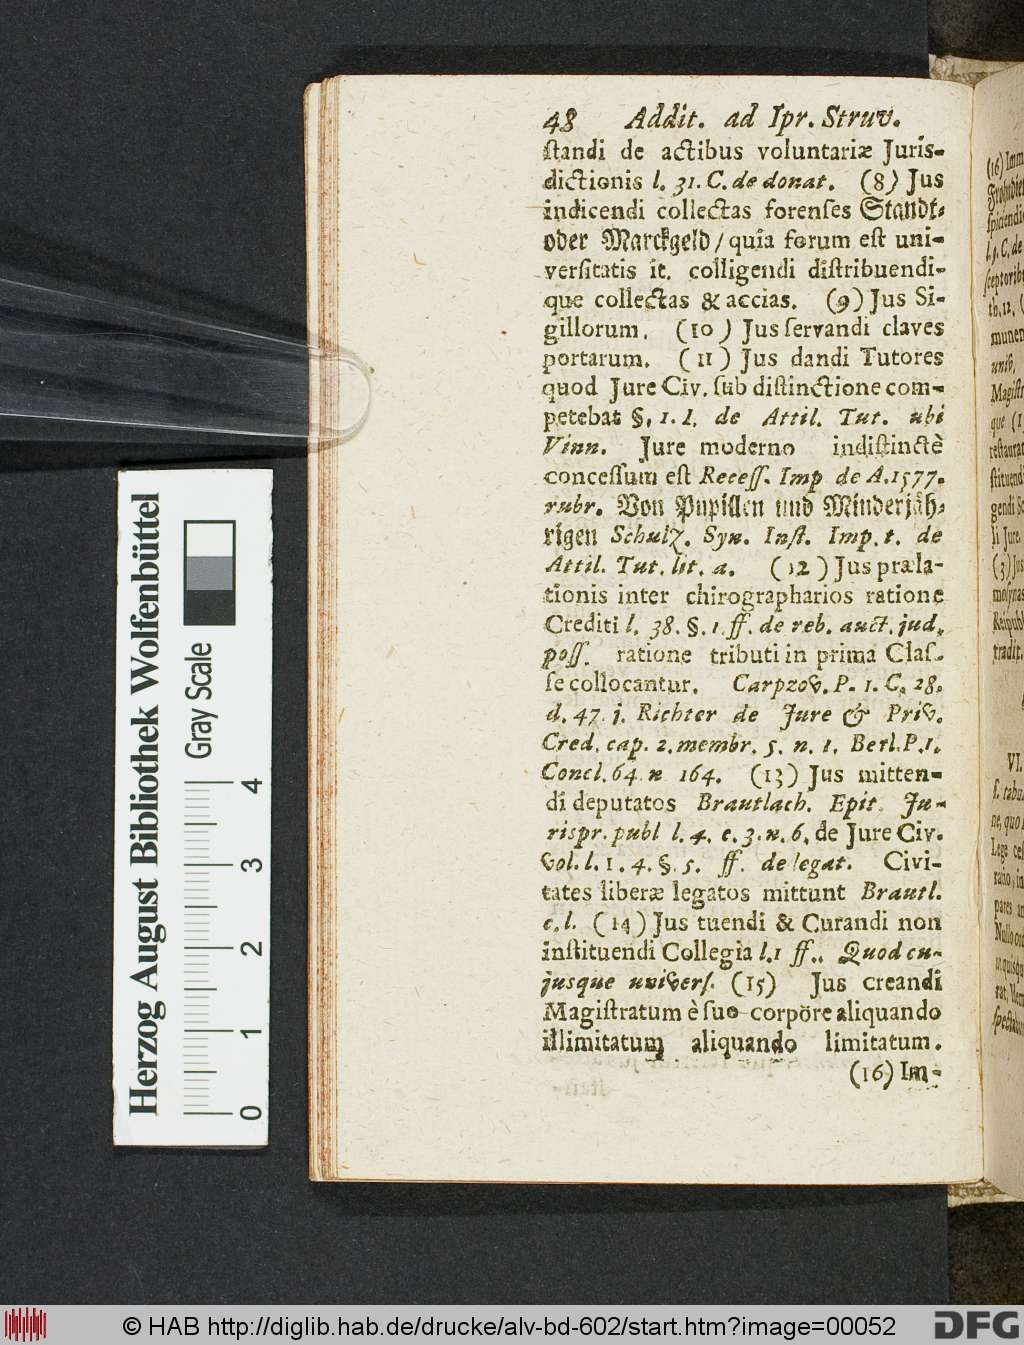 48 Addit. ad Ipr. Struv.
ſtandi de actibus voluntariæ Juris-
dictionis l. 31. C. de donat. (8) Jus
indicendi collectas forenſes Standt-
oder Marckgeld / quia forum eſt uni-
verſitatis it. colligendi diſtribuendi-
que collectas & accias. (9) Jus Si-
gillorum. (10) Jus ſervandi claves
portarum. (11) Jus dandi Tutores
quod Jure Civ. ſub diſtinctione com-
petebat §. 1. l. de Attil. Tut. ubi
Vinn. Jure moderno indiſtinctè
conceſſum eſt Receſſ. Imp de A. 1577.
rubr. Von Pupillen und Minderjäh-
rigen Schulz. Syn. Inſt. Imp. t. de
Attil. Tut. lit. a. (12) Jus præla-
tionis inter chirographarios ratione
Crediti l. 38. §. 1. ff. de reb. auct. jud.
poſſ. ratione tributi in prima Claſ-
ſe collocantur. Carpzov. P. 1. C. 28.
d. 47. j. Richter de Jure & Priv.
Cred. cap. 2. membr. 5. n. 1. Berl. P. 1.
Concl. 64. n 164. (13) Jus mitten-
di deputatos Brautlach. Epit. Ju-
rispr. publ l. 4. c. 3. n. 6. de Jure Civ.
vol. l. 1. 4. §. 5. ff. de legat. Civi-
tates liberæ legatos mittunt Brautl.
c. l. (14) Jus tuendi & Curandi non
inſtituendi Collegia l. 1 ff. Quod cu-
jusque univerſ. (15) Jus creandi
Magiſtratum è ſuo corpore aliquando
illimitatum aliquando limitatum.
(16) Im-
(16) Imm
ſpiciendi
l. 9. C. de
ſceptorib
th. 12. (
munem
univ.
Magiſtr
que (1
reſtaurat
ſtituend
gendi Sc
li Jure.
(3) Jus
moſynas
Reipubl
tradit.
VI.
ſ. tabu
ne, quo
Lege ceſ
ratio, in
pares in
Herzog August Bibliothek Wolfenbüttel
Gray Scale
0 1 2 3 4
© HAB http://diglib.hab.de/drucke/alv-bd-602/start.htm?image=00052
DFG